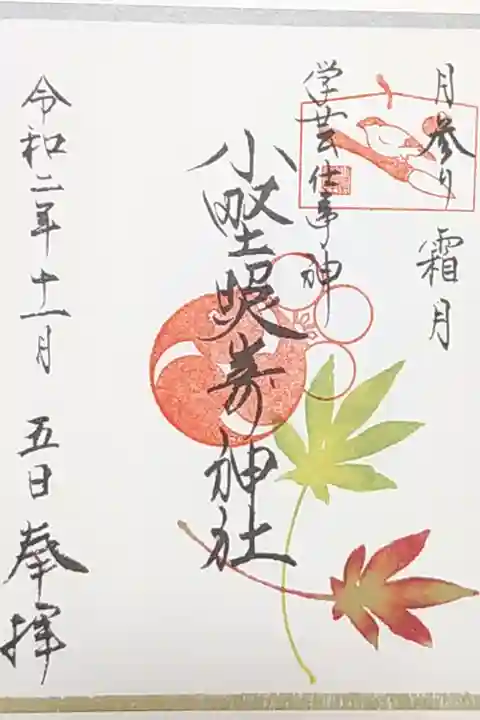 月参り 霜月
学芸仕事ノ神
小野照崎神社
令和二年十一月 五日 奉拝